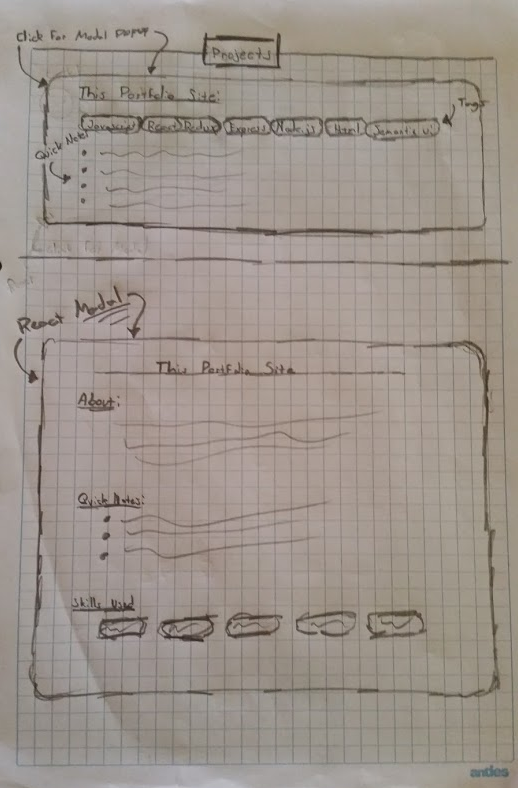 Click For Modal popup
Projects
This Portfolio Site:
Tags
Javascript React Redux Express Node.js Html Semantic ui
Quick Notes
React Modal
This Portfolio Site
About:
Quick Notes:
Skills Used